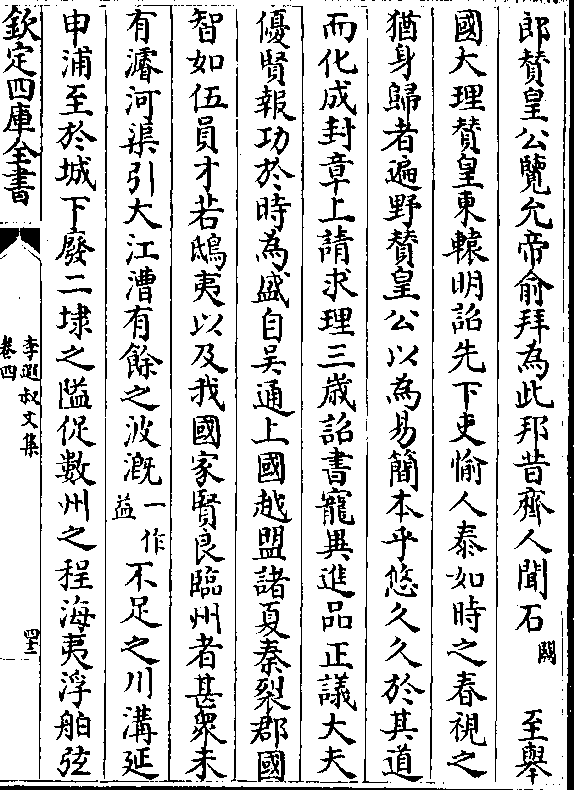 郎贊皇公覽允帝俞拜為此邦昔齊人聞石闕至舉
國大理贊皇東轅明詔先下吏愉人泰如時之春視之
猶身歸者遍野贊皇公以為易簡本乎悠久久於其道
而化成封章上請求理三歳詔書寵異進品正議大夫
優賢報功於時為盛自吳通上國越盟諸夏秦裂郡國
智如伍員才若鴟夷以及我國家賢良臨州者甚衆未
有濬河渠引大江漕有餘之波溉一作益不足之川溝延
申浦至於城下廢二埭之隘促數州之程海夷浮舶弦
欽定四庫全書
李遐叔文集
卷四